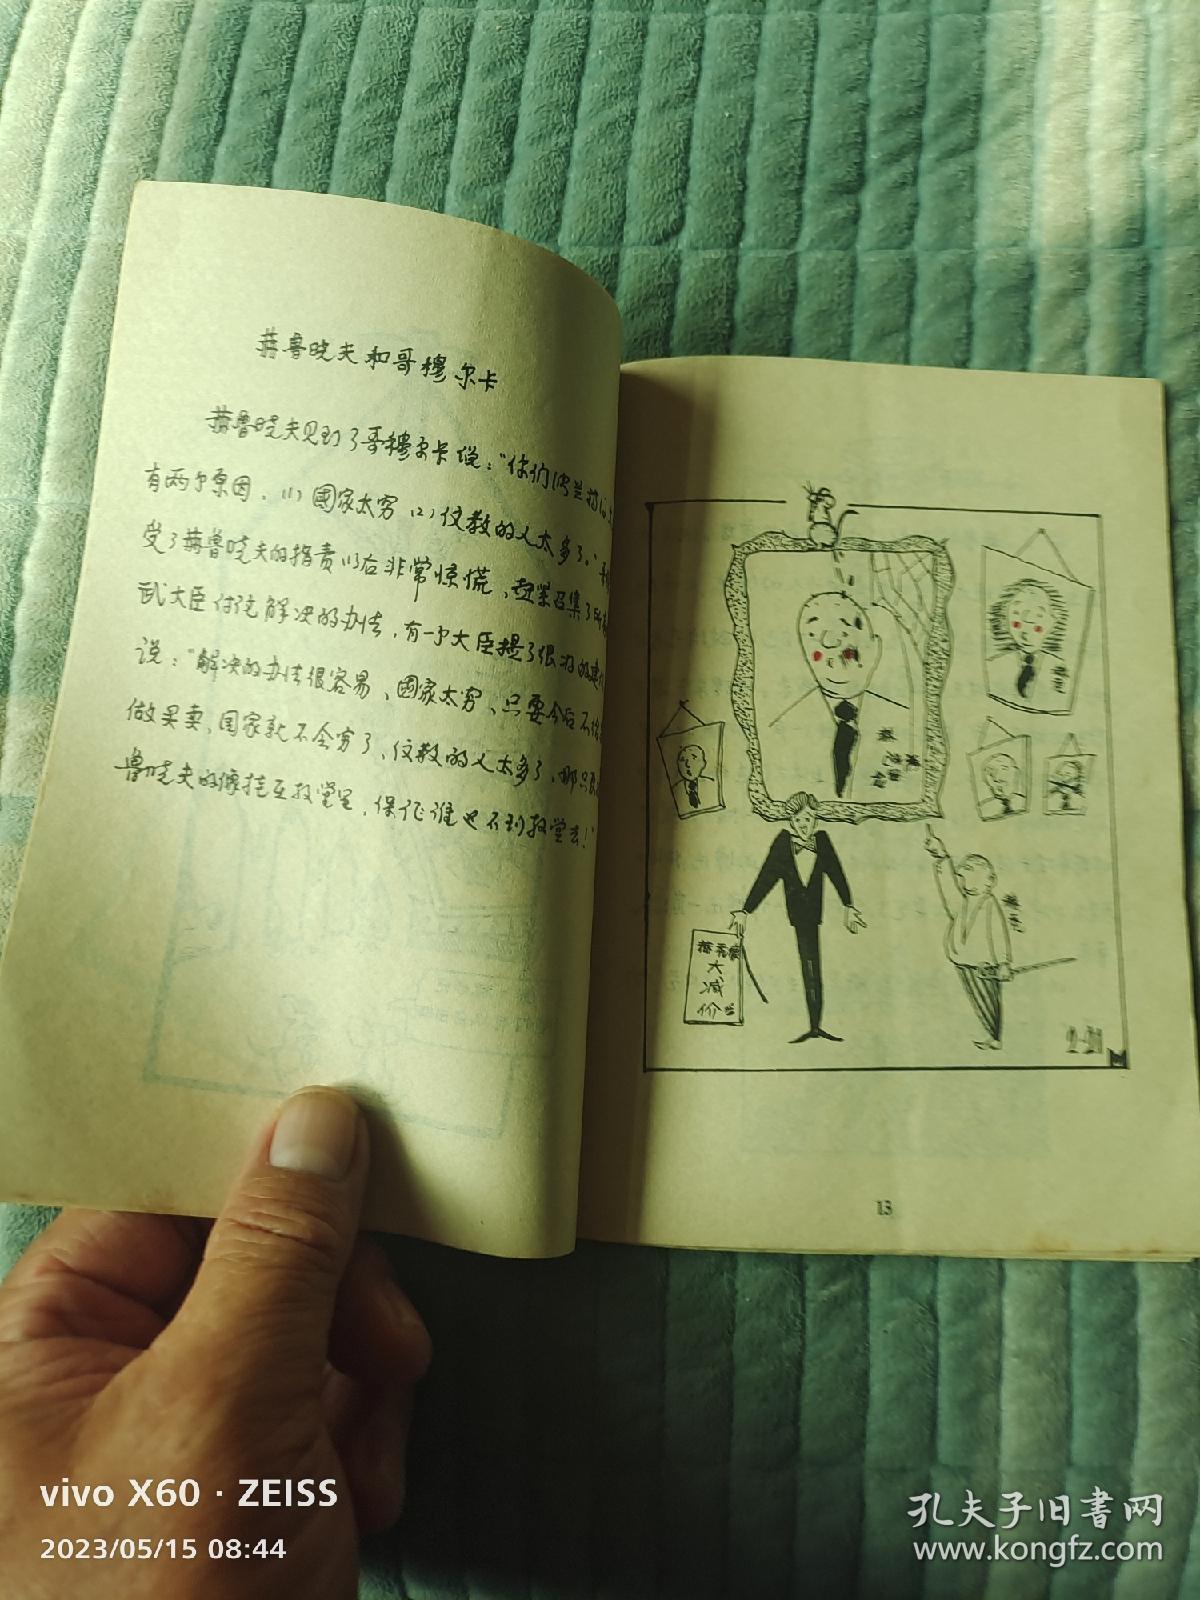 赫鲁晓夫和哥穆尔卡
赫鲁晓夫见到了哥穆尔卡说："你们波兰搞
有两个原因，(1)國家太穷(2)仪教的人太多了。"
受了赫鲁晓夫的指责以后非常惊慌，赶紧召集了所
武大臣讨论解决的办法，有一个大臣提了很好的建
说："解决的办法很容易，國家太穷、只要今后不给
做买卖，国家就不会穷了，仪教的人太多了，那只
鲁晓夫的像挂在教堂里，保证谁也不到教堂去！"
赫秃像
大
减
价
2-21
13
vivo X60 · ZEISS
2023/05/15 08:44
孔夫子旧书网
www.kongfz.com